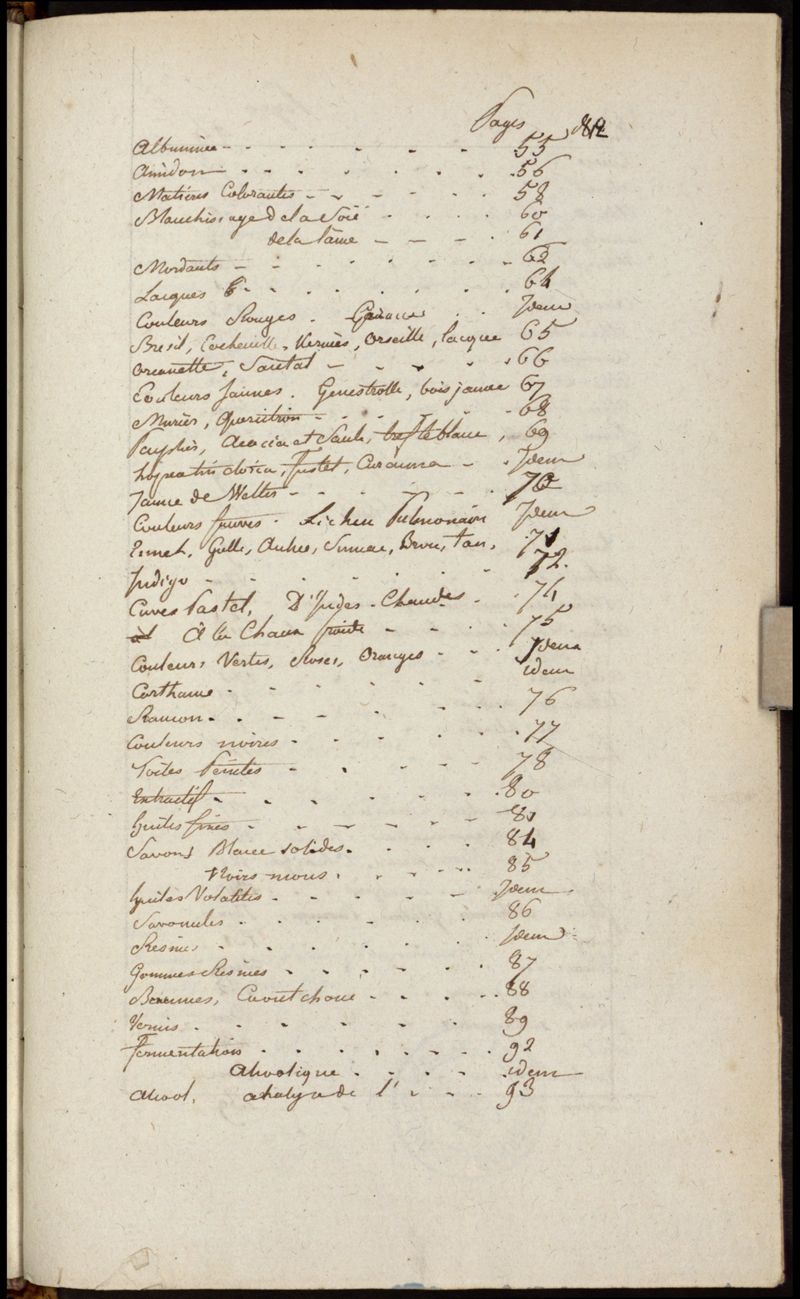 Pages
Albumine - - - - - - - 55
Amidon - - - - - - - 56
Matières Colorantes - - - - - 58
Blanchissage de la Soie - - - - 60
de la laine - - - - 61
Mordants - - - - - - - 62
Lacques - - - - - - - 64
Couleurs Rouges. Garance . . Idem
Bresil, Cochenille, Kermès, Orseille, lacque 65
Orcanette, Santal - - - - - 66
Couleurs Jaunes. Genestrolle, bois jaune 67
Murier, Quercitron - - - - - 68
Peuplier, Acacia et Saule, trefle blanc, 69
fustet, Curcuma - . Idem
Jaune de - - - - - 70
Couleurs fauves. Lichen Pulmonaire Idem
Galle, Aulne, Sumac, Brou, tan, 71
Indigo - - - - - - - 72.
Cuves Pastel, D'Indes. Chaudes - . 74
à la Chaux froide - - - . 75
Couleurs Vertes, Roses, Oranges - - . Idem
Carthame - - - - - - idem
- - - - - - 76
Couleurs noires - - - - - 77
Toiles Peintes - . - - - 78
Extractif - - - - - - .80
huiles fixes - - - - - - 81
Savons Blancs solides. - - - . 84
Noirs mous. - - - - . 85
huiles Volatiles - - - - - Idem.
Savonules . - - - - - 86
Resines - - - - - - . Idem
Gommes Resines - - - - - . 87
Beaumes, Caoutchouc - - - - . 88
Vernis . - - - - - 89
Fermentation . . . . - - - . 92
Alcoolique . - - - . idem
Alcool, analyse de l' - - - . 93